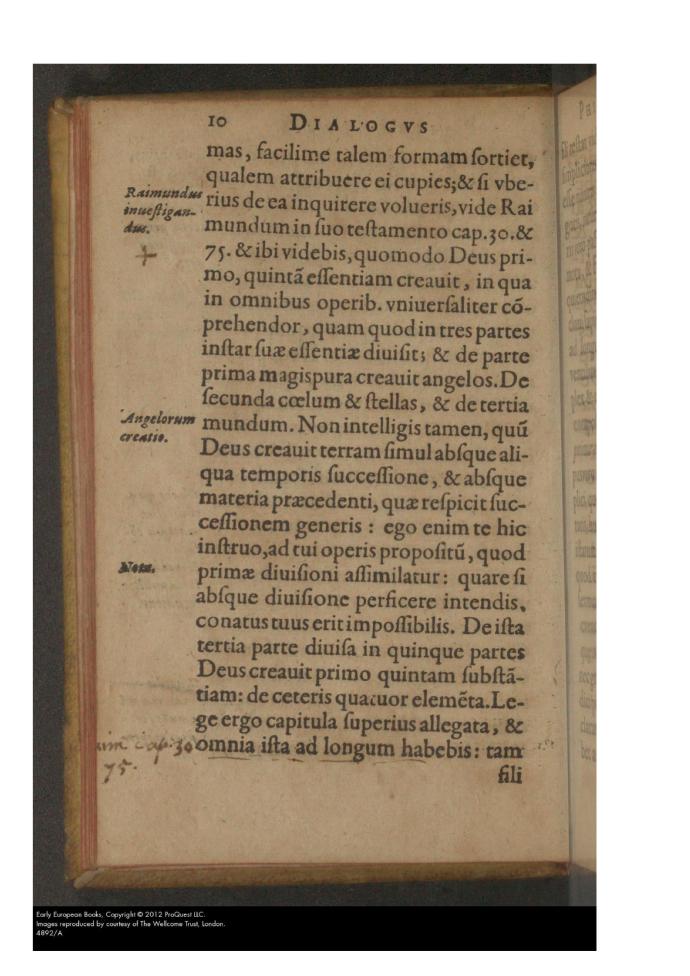 10 DIALOGVS
mas, facilime talem formam ſortiet,
qualem attribuere ei cupies;& ſi vbe-
Raimundus
inueſtigan-
dus.
rius de ea inquirere volueris, vide Rai
mundum in ſuo teſtamento cap.30.&
75. & ibi videbis, quomodo Deus pri-
mo, quintã eſſentiam creauit, in qua
in omnibus operib. vniuerſaliter cõ-
prehendor, quam quod in tres partes
inſtar ſuæ eſſentiæ diuiſit; & de parte
prima magispura creauit angelos. De
ſecunda cœlum & ſtellas, & de tertia
Angelorum
creatio.
mundum. Non intelligis tamen, quũ
Deus creauit terram ſimul abſque ali-
qua temporis ſucceſſione, & abſque
materia præcedenti, quæ reſpicit ſuc-
ceſſionem generis : ego enim te hic
inſtruo, ad tui operis propoſitũ, quod
Nota.
primæ diuiſioni aſſimilatur: quare ſi
abſque diuiſione perficere intendis,
conatus tuus erit impoſſibilis. De iſta
tertia parte diuiſa in quinque partes
Deus creauit primo quintam ſubſtã-
tiam: de ceteris quatuor elemẽta. Le-
ge ergo capitula ſuperius allegata, &
cap. 30
75.
omnia iſta ad longum habebis: tam
fili
Early European Books, Copyright © 2012 ProQuest LLC.
Images reproduced by courtesy of The Wellcome Trust, London.
4892/A